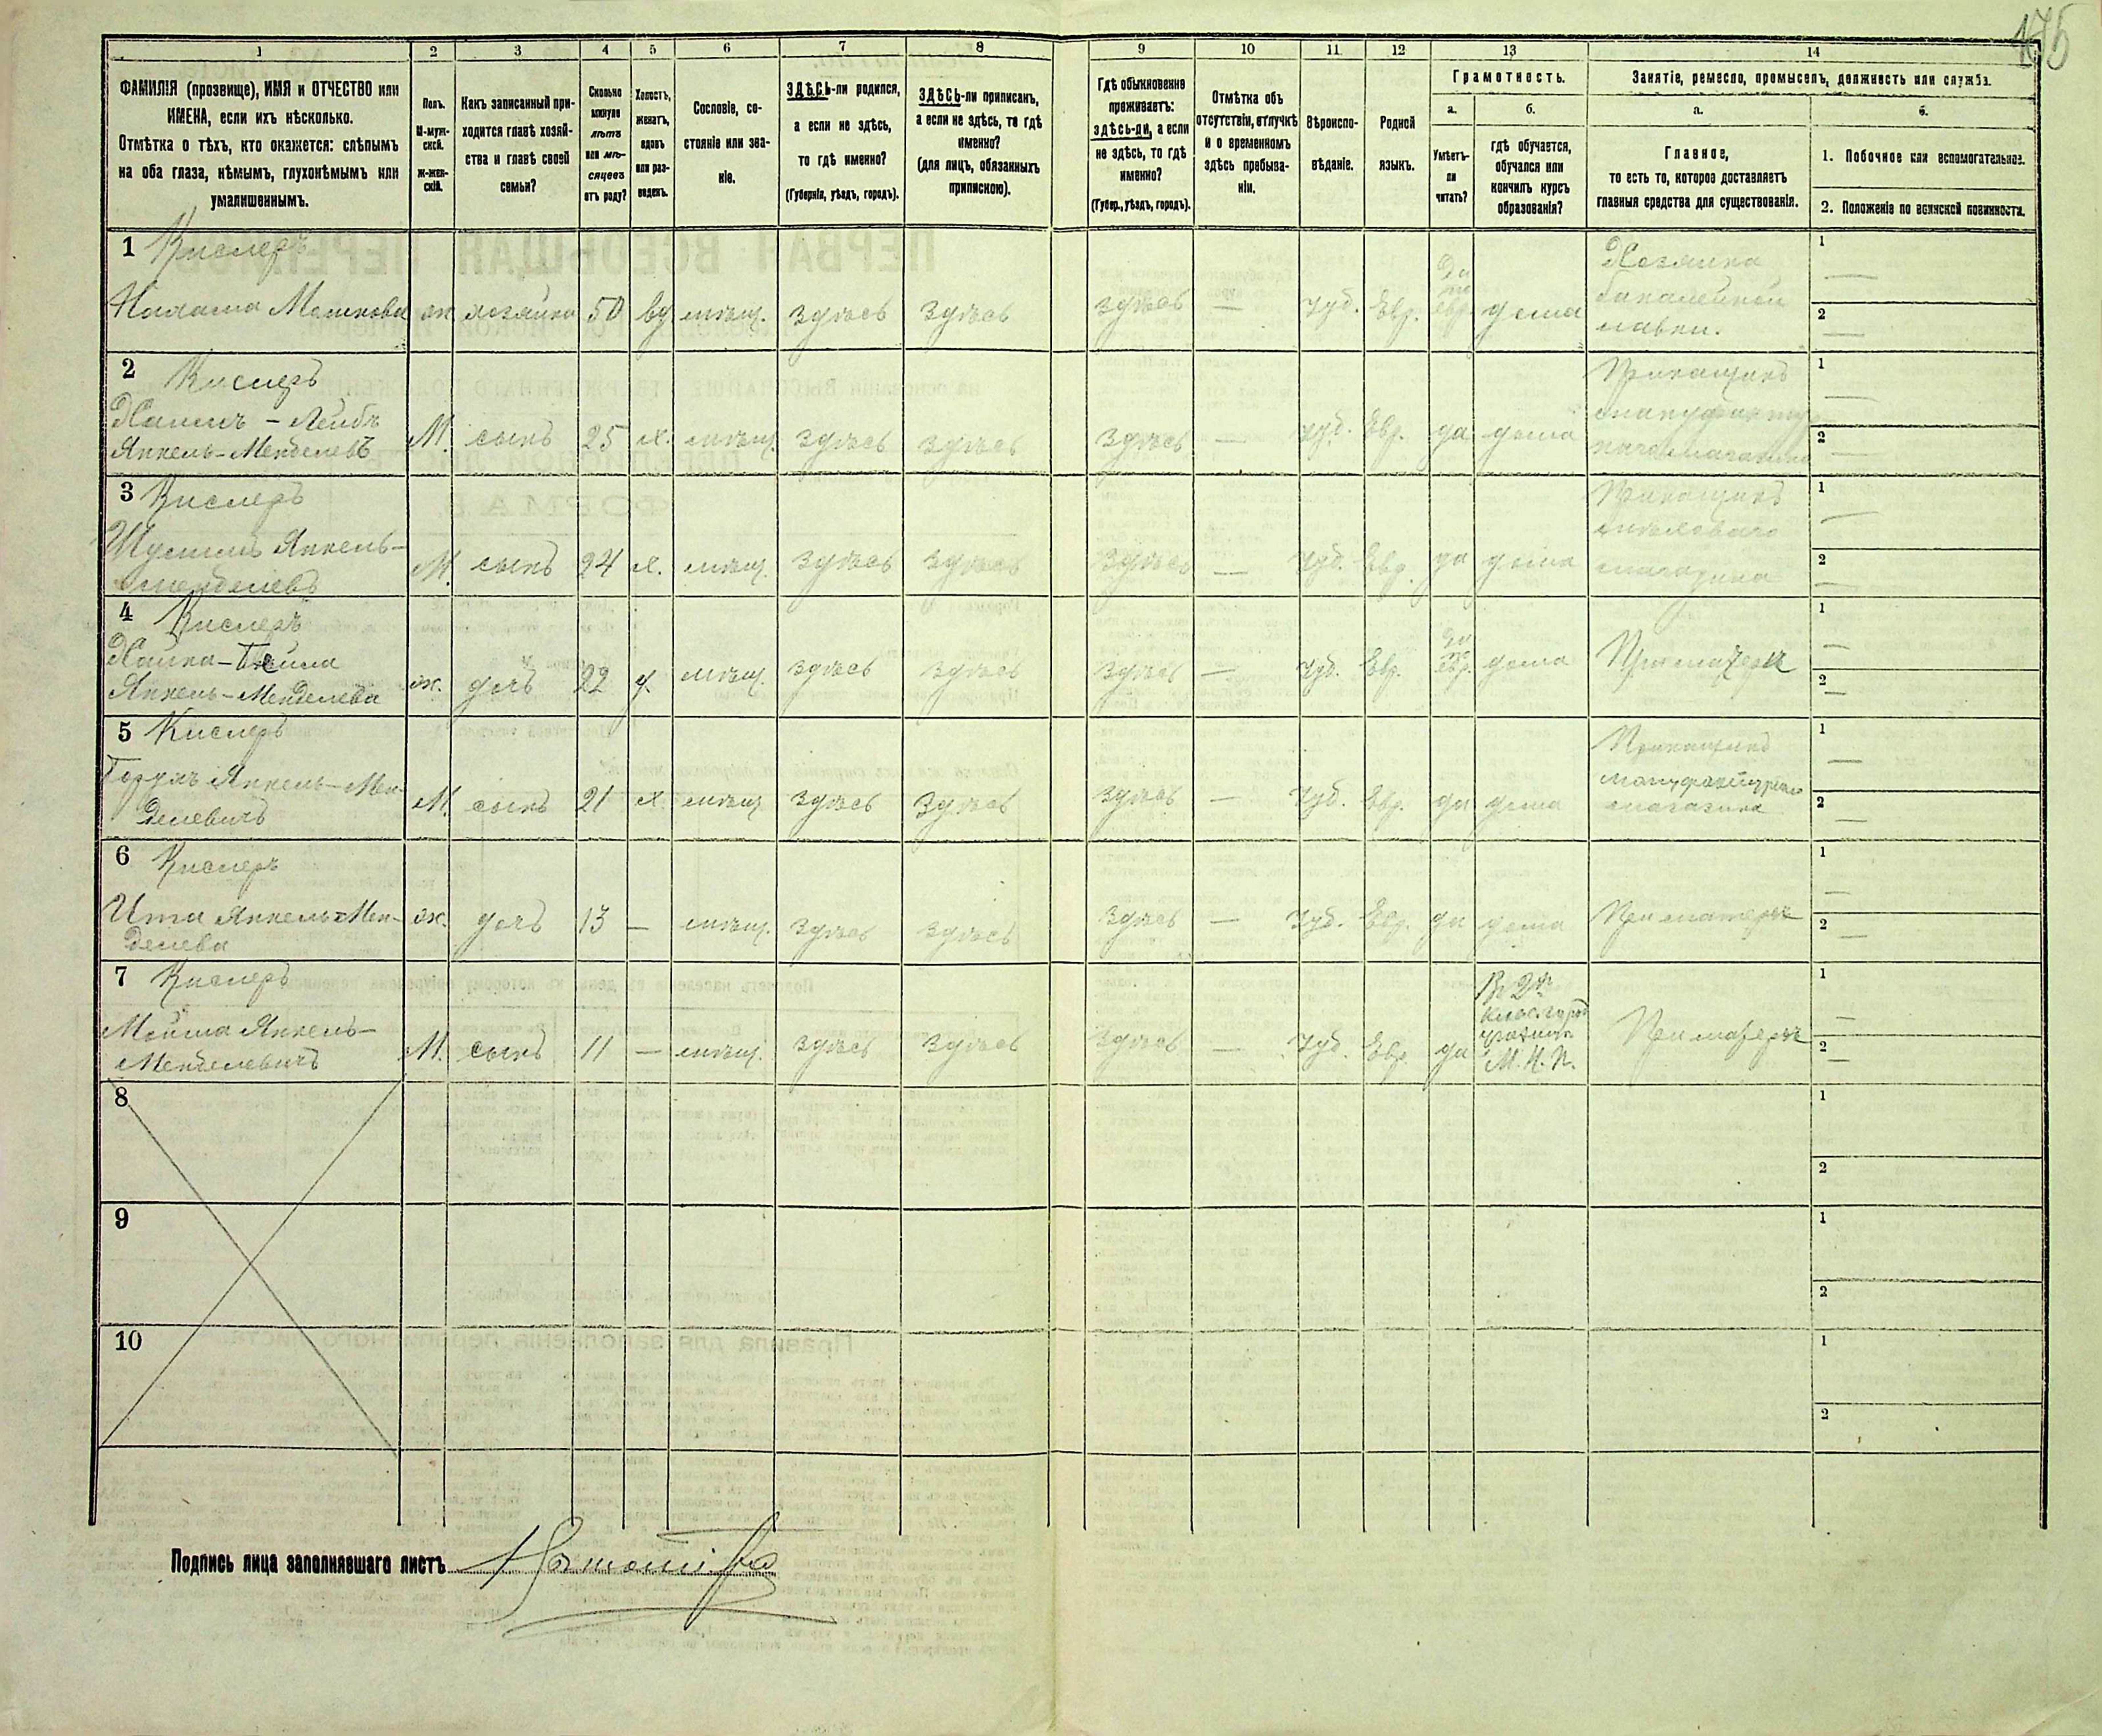 175
1 2 3 4 5 6 7 8 9 10 11 12 13 14
ФАМИЛІЯ (прозвище), ИМЯ и ОТЧЕСТВО или
ИМЕНА, если ихъ нѣсколько.
Отмѣтка о тѣхъ, кто окажется: слѣпымъ
на оба глаза, нѣмымъ, глухонѣмымъ или
умалишеннымъ.
Полъ.
М-муж-
ской.
Ж-жен-
скій.
Какъ записанный при-
ходится главѣ хозяй-
ства и главѣ своей
семьи?
Сколько
минуло
лѣтъ
или мѣ-
сяцевъ
отъ роду?
Холостъ,
женатъ,
вдовъ
или раз-
веденъ.
Сословіе, со-
стояніе или зва-
ніе.
ЗДѢСЬ-ли родился,
а если не здѣсь,
то гдѣ именно?
(Губернія, уѣздъ, городъ).
ЗДѢСЬ-ли приписанъ,
а если не здѣсь, то гдѣ
именно?
(для лицъ, обязанныхъ
припискою).
Гдѣ обыкновенно
проживаетъ:
здѣсь-ли, а если
не здѣсь, то гдѣ
именно?
(Губер., уѣздъ, городъ).
Отмѣтка объ
отсутствіи, отлучкѣ
и о временномъ
здѣсь пребыва-
ніи.
Вѣроиспо-
вѣданіе.
Родной
языкъ.
Грамотность.
а.
Умѣетъ-
ли
читать?
б.
гдѣ обучается,
обучался или
кончилъ курсъ
образованія?
Занятіе, ремесло, промыселъ, должность или служба.
а.
Главное,
то есть то, которое доставляетъ
главныя средства для существованія.
б.
1. Побочное или вспомогательное.
2. Положеніе по воинской повинности.
1 Кислеръ
Мошкова ж хозяйка 50 вд мѣщ. здѣсь здѣсь здѣсь — Іуд. Евр. да по евр. дома
Хозяйка
бакалейной
лавки.
1 —
2 —
2 Кислеръ
Хаимъ-Лейбъ
Янкель-Менделевъ М. сынъ 25 х. мѣщ. здѣсь здѣсь здѣсь — Іуд. Евр. да дома
Прикащикъ
магазина
1 —
2 —
3 Кислеръ
Янкель-
Менделевъ М. сынъ 24 х. мѣщ. здѣсь здѣсь здѣсь — Іуд. Евр. да дома
Прикащикъ
магазина
1 —
2 —
4 Кислеръ
Хайка-Бейла
Янкель-Менделева ж. дочь 22 д. мѣщ. здѣсь здѣсь здѣсь — Іуд. Евр. да по евр. дома При матери
1 —
2 —
5 Кислеръ
Янкель-Мен-
делевичъ М. сынъ 21 х. мѣщ. здѣсь здѣсь здѣсь — Іуд. Евр. да дома
Прикащикъ
мануфактурнаго
магазина
1 —
2 —
6 Кислеръ
Ита Янкель-Мен-
делева ж. дочь 13 — мѣщ. здѣсь здѣсь здѣсь — Іуд. Евр. да дома При матери
1 —
2 —
7 Кислеръ
Мойша Янкель-
Менделевичъ М. сынъ 11 — мѣщ. здѣсь здѣсь здѣсь — Іуд. Евр. да
Въ 2мъ
клас. город
училищѣ
М. Н. П.
При матери
1 —
2 —
8
1
2
9
1
2
10
1
2
Подпись лица заполнявшаго листъ